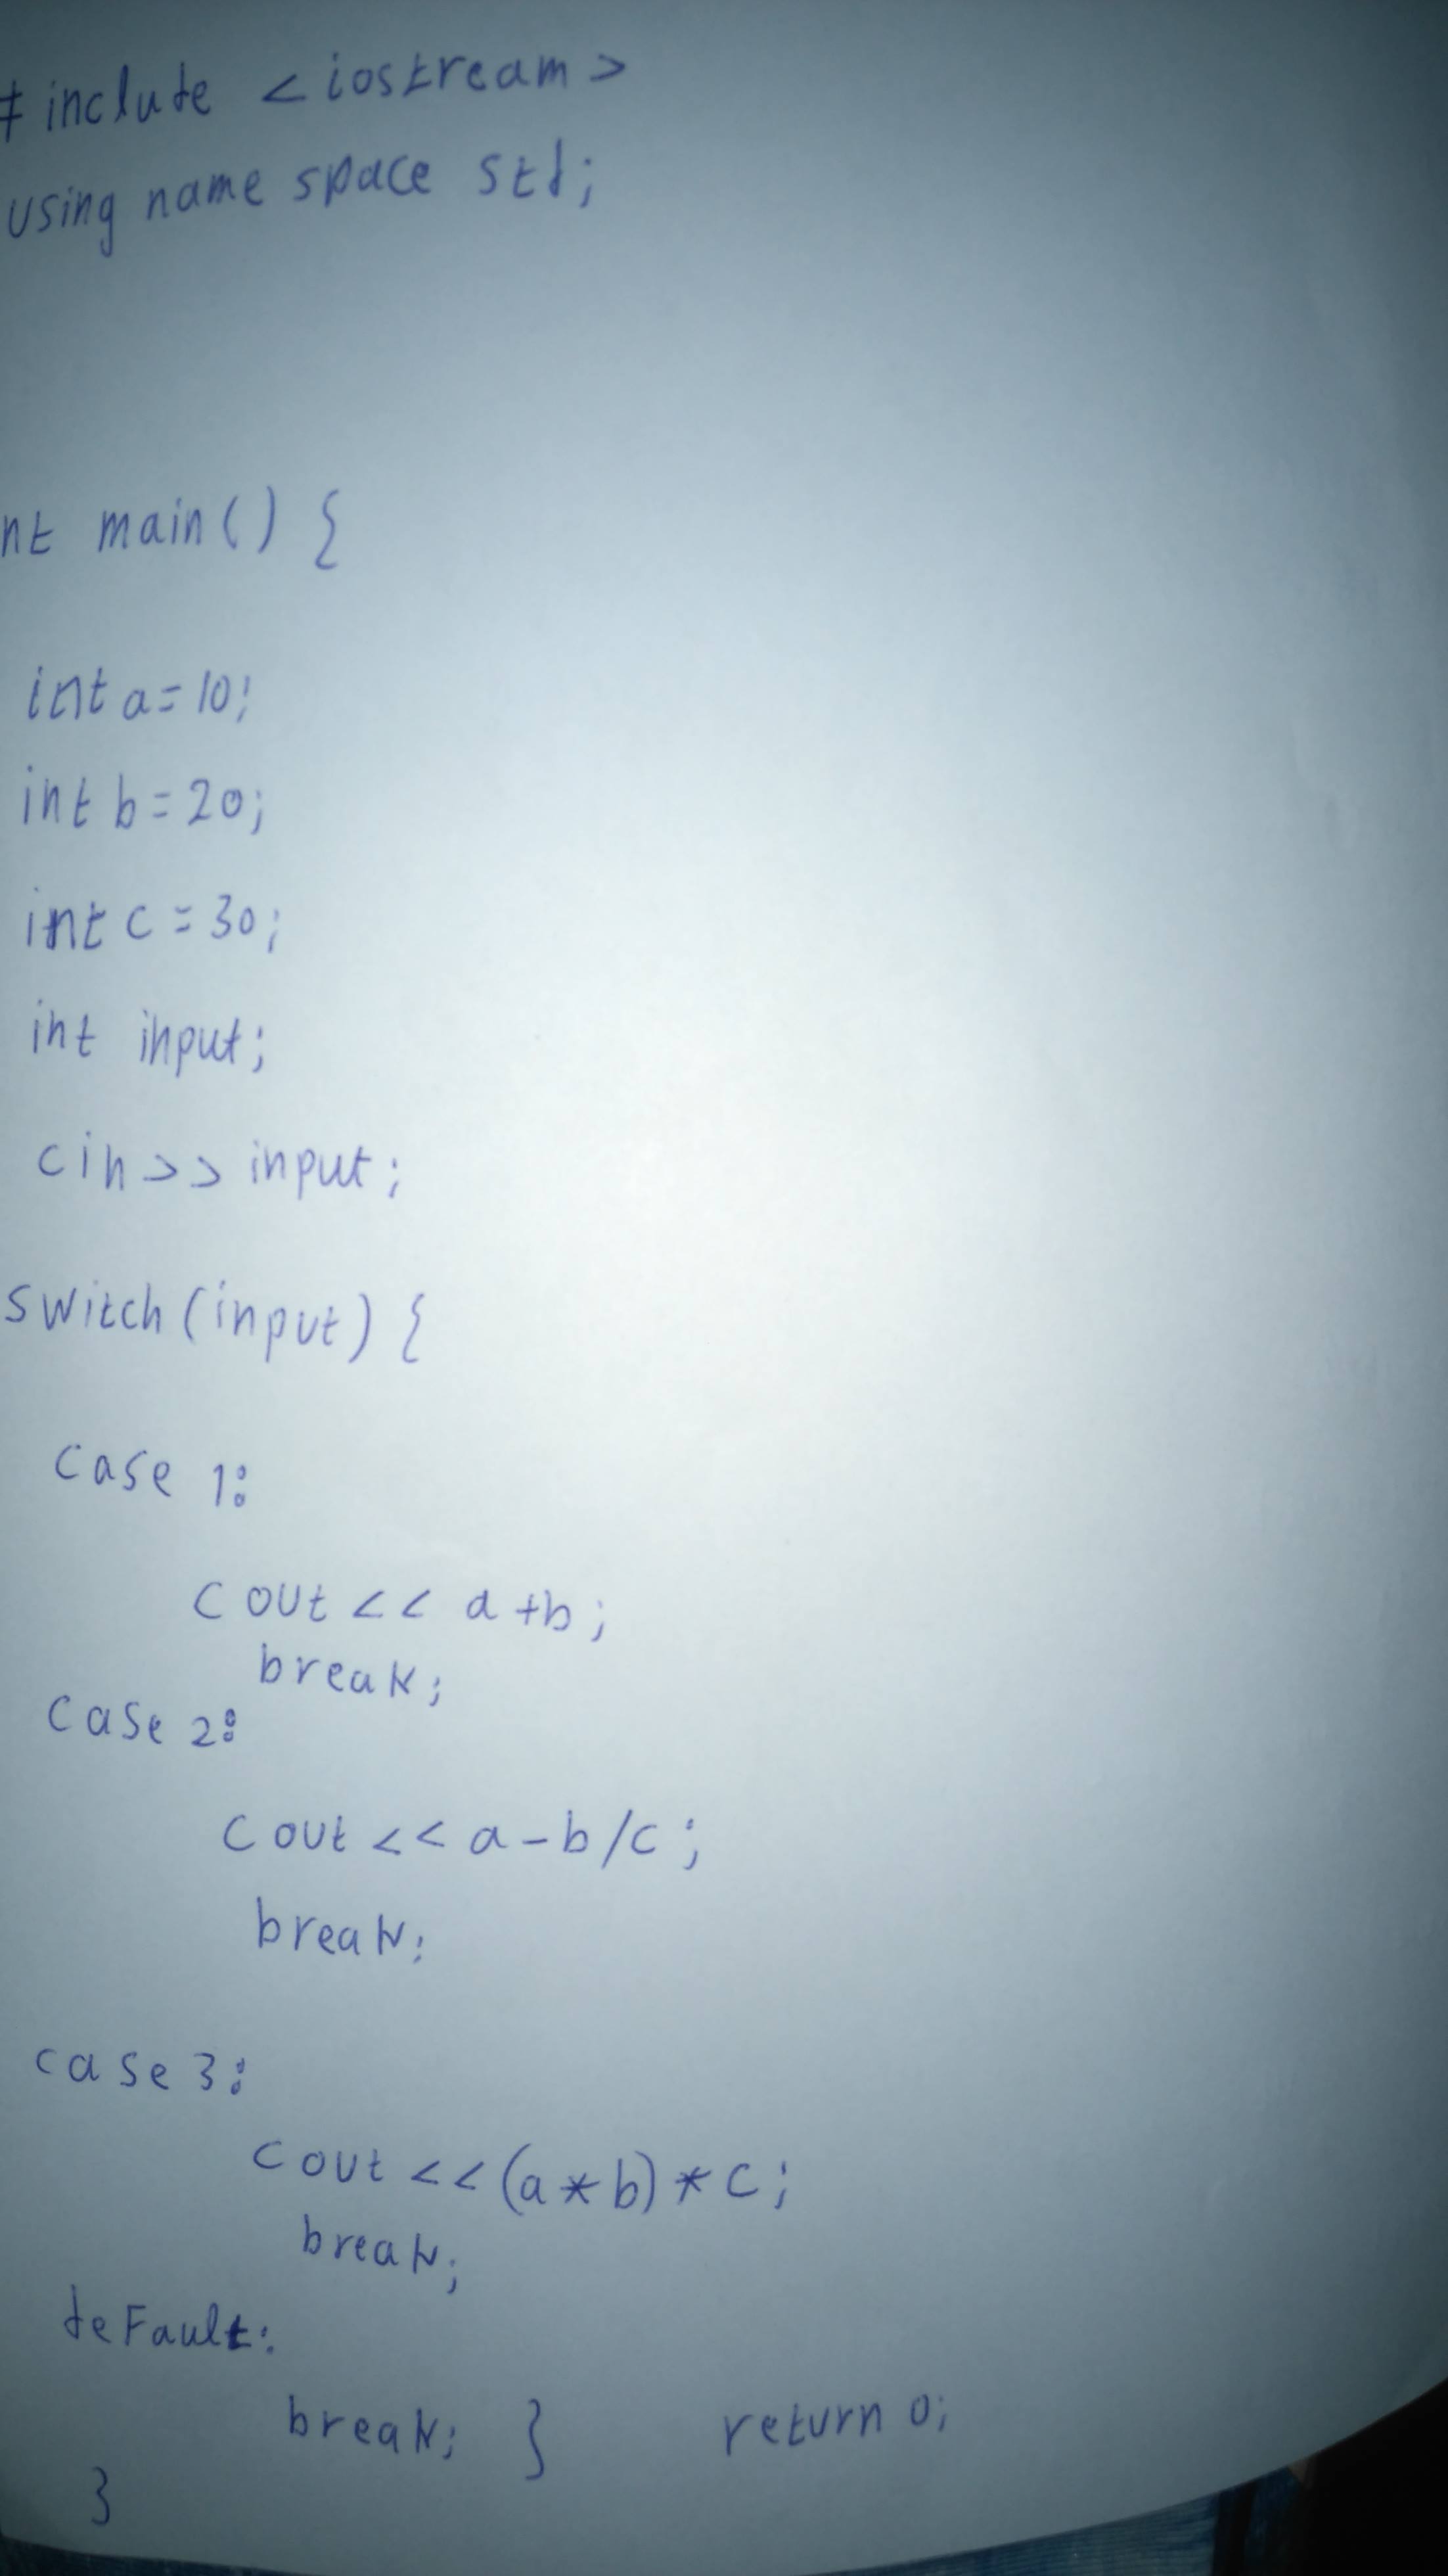 # include <iostream>
using name space std;
nt main() {
int a=10;
int b=20;
int c=30;
int input;
cin>> input;
switch(input) {
case 1:
cout << a+b;
break;
case 2:
cout << a-b/c;
break;
case 3:
cout <<(a*b)*c;
break;
deFault:
break; } return 0;
}